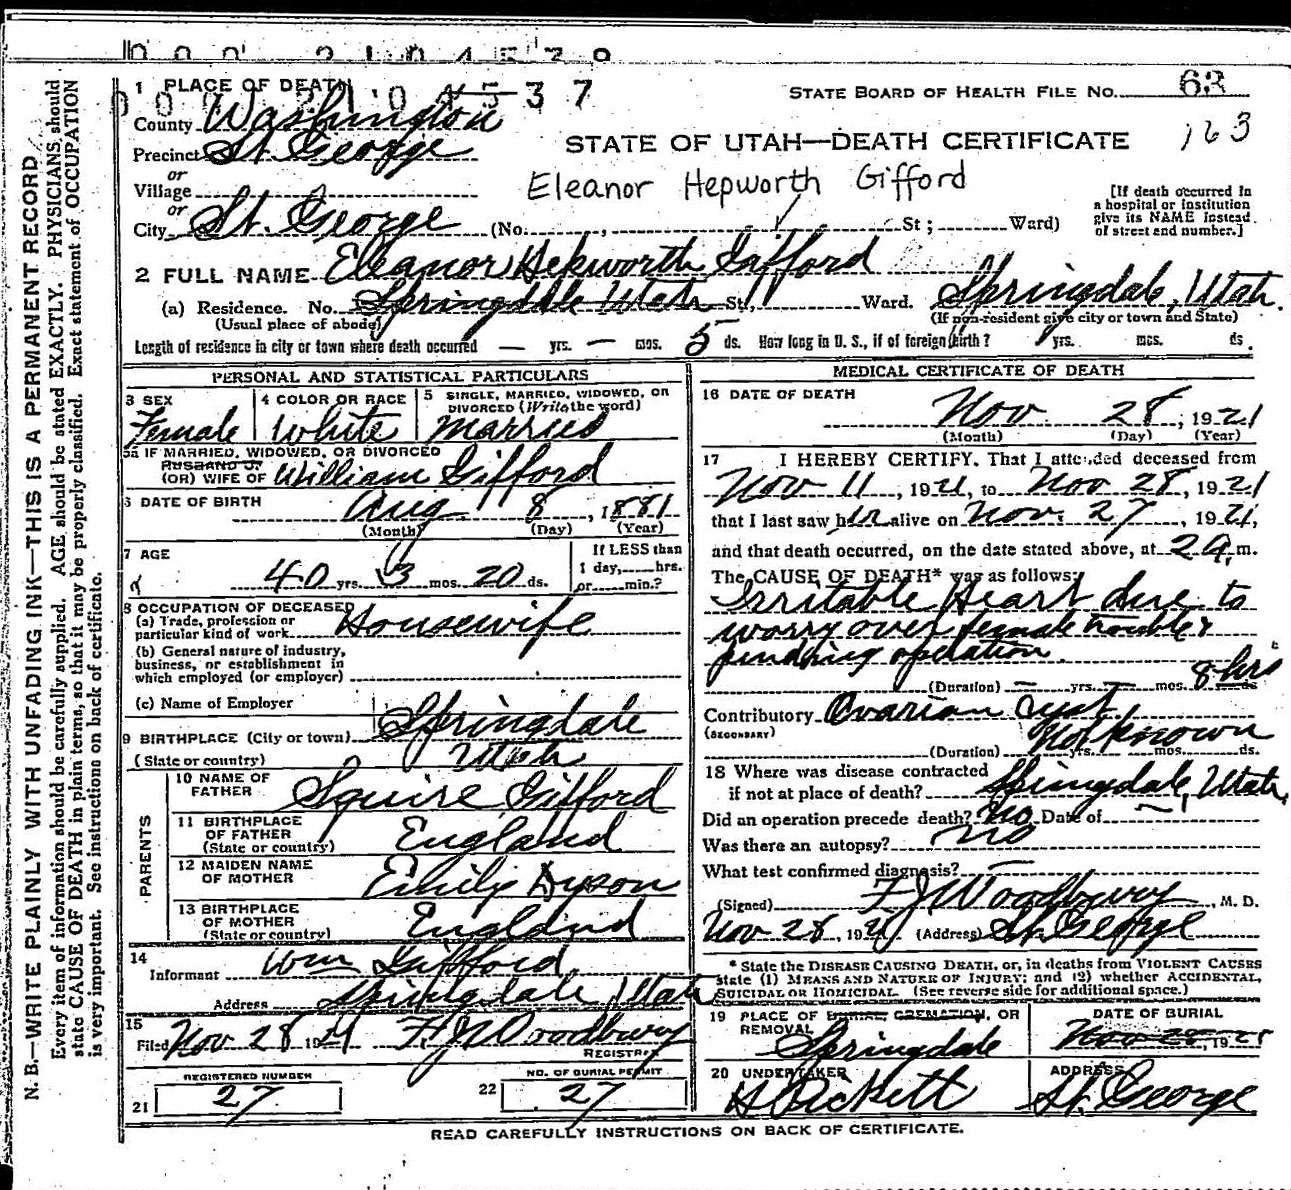 000 2104579
000 2104537
1 PLACE OF DEATH
STATE BOARD OF HEALTH FILE NO. 63
163
County Washington
STATE OF UTAH—DEATH CERTIFICATE
Precinct St. George
or
Village
Eleanor Hepworth Gifford
[If death occurred in a hospital or institution give its NAME instead of street and number.]
or
City St. George (No. , St; Ward)
2 FULL NAME Eleanor Hepworth Gifford
(a) Residence. No. Springdale Utah St, Ward. Springdale, Utah.
(Usual place of abode) (If non-resident give city or town and State)
Length of residence in city or town where death occurred — yrs. — mos. 5 ds. How long in U. S., if of foreign birth? yrs. mos. ds.
PERSONAL AND STATISTICAL PARTICULARS
3 SEX Female
4 COLOR OR RACE White
5 SINGLE, MARRIED, WIDOWED, OR DIVORCED (Write the word) Married
5a IF MARRIED, WIDOWED, OR DIVORCED
HUSBAND OF
(OR) WIFE OF William Gifford
6 DATE OF BIRTH Aug 8, 1881
(Month) (Day) (Year)
7 AGE
40 yrs. 3 mos. 20 ds.
If LESS than 1 day, hrs. or min.?
8 OCCUPATION OF DECEASED
(a) Trade, profession or particular kind of work Housewife
(b) General nature of industry, business, or establishment in which employed (or employer)
(c) Name of Employer
9 BIRTHPLACE (City or town) Springdale
(State or country) Utah
PARENTS
10 NAME OF FATHER Squire Gifford
11 BIRTHPLACE OF FATHER (State or country) England
12 MAIDEN NAME OF MOTHER Emily Dyson
13 BIRTHPLACE OF MOTHER (State or country) England
14
Informant Wm Gifford
Address Springdale, Utah
15
Filed Nov 28 1921 F. J. Woodbury
REGISTRAR
REGISTERED NUMBER
21 27
NO. OF BURIAL PERMIT
22 27
MEDICAL CERTIFICATE OF DEATH
16 DATE OF DEATH
Nov 28, 1921
(Month) (Day) (Year)
17 I HEREBY CERTIFY. That I attended deceased from
Nov 11, 1921, to Nov 28, 1921
that I last saw her alive on Nov. 27, 1921,
and that death occurred, on the date stated above, at 2 a.m.
The CAUSE OF DEATH* was as follows:
Irritable Heart due to
worry over female trouble &
pending operation
(Duration) — yrs. — mos. 8 hrs ds
Contributory Ovarian cyst
(SECONDARY)
(Duration) Not known yrs. mos. ds.
18 Where was disease contracted
if not at place of death? Springdale, Utah.
Did an operation precede death? No Date of —
Was there an autopsy? No
What test confirmed diagnosis? —
(Signed) F J Woodbury, M. D.
Nov 28, 1921 (Address) St. George
* State the DISEASE CAUSING DEATH, or, in deaths from VIOLENT CAUSES
state (1) MEANS AND NATURE OF INJURY; and (2) whether ACCIDENTAL,
SUICIDAL OR HOMICIDAL. (See reverse side for additional space.)
19 PLACE OF BURIAL, CREMATION, OR REMOVAL Springdale
DATE OF BURIAL Nov 28, 1921
20 UNDERTAKER Pickett
ADDRESS St. George
READ CAREFULLY INSTRUCTIONS ON BACK OF CERTIFICATE.
N. B.—WRITE PLAINLY WITH UNFADING INK—THIS IS A PERMANENT RECORD
Every item of information should be carefully supplied. AGE should be stated EXACTLY. PHYSICIANS should
state CAUSE OF DEATH in plain terms, so that it may be properly classified. Exact statement of OCCUPATION
is very important. See instructions on back of certificate.